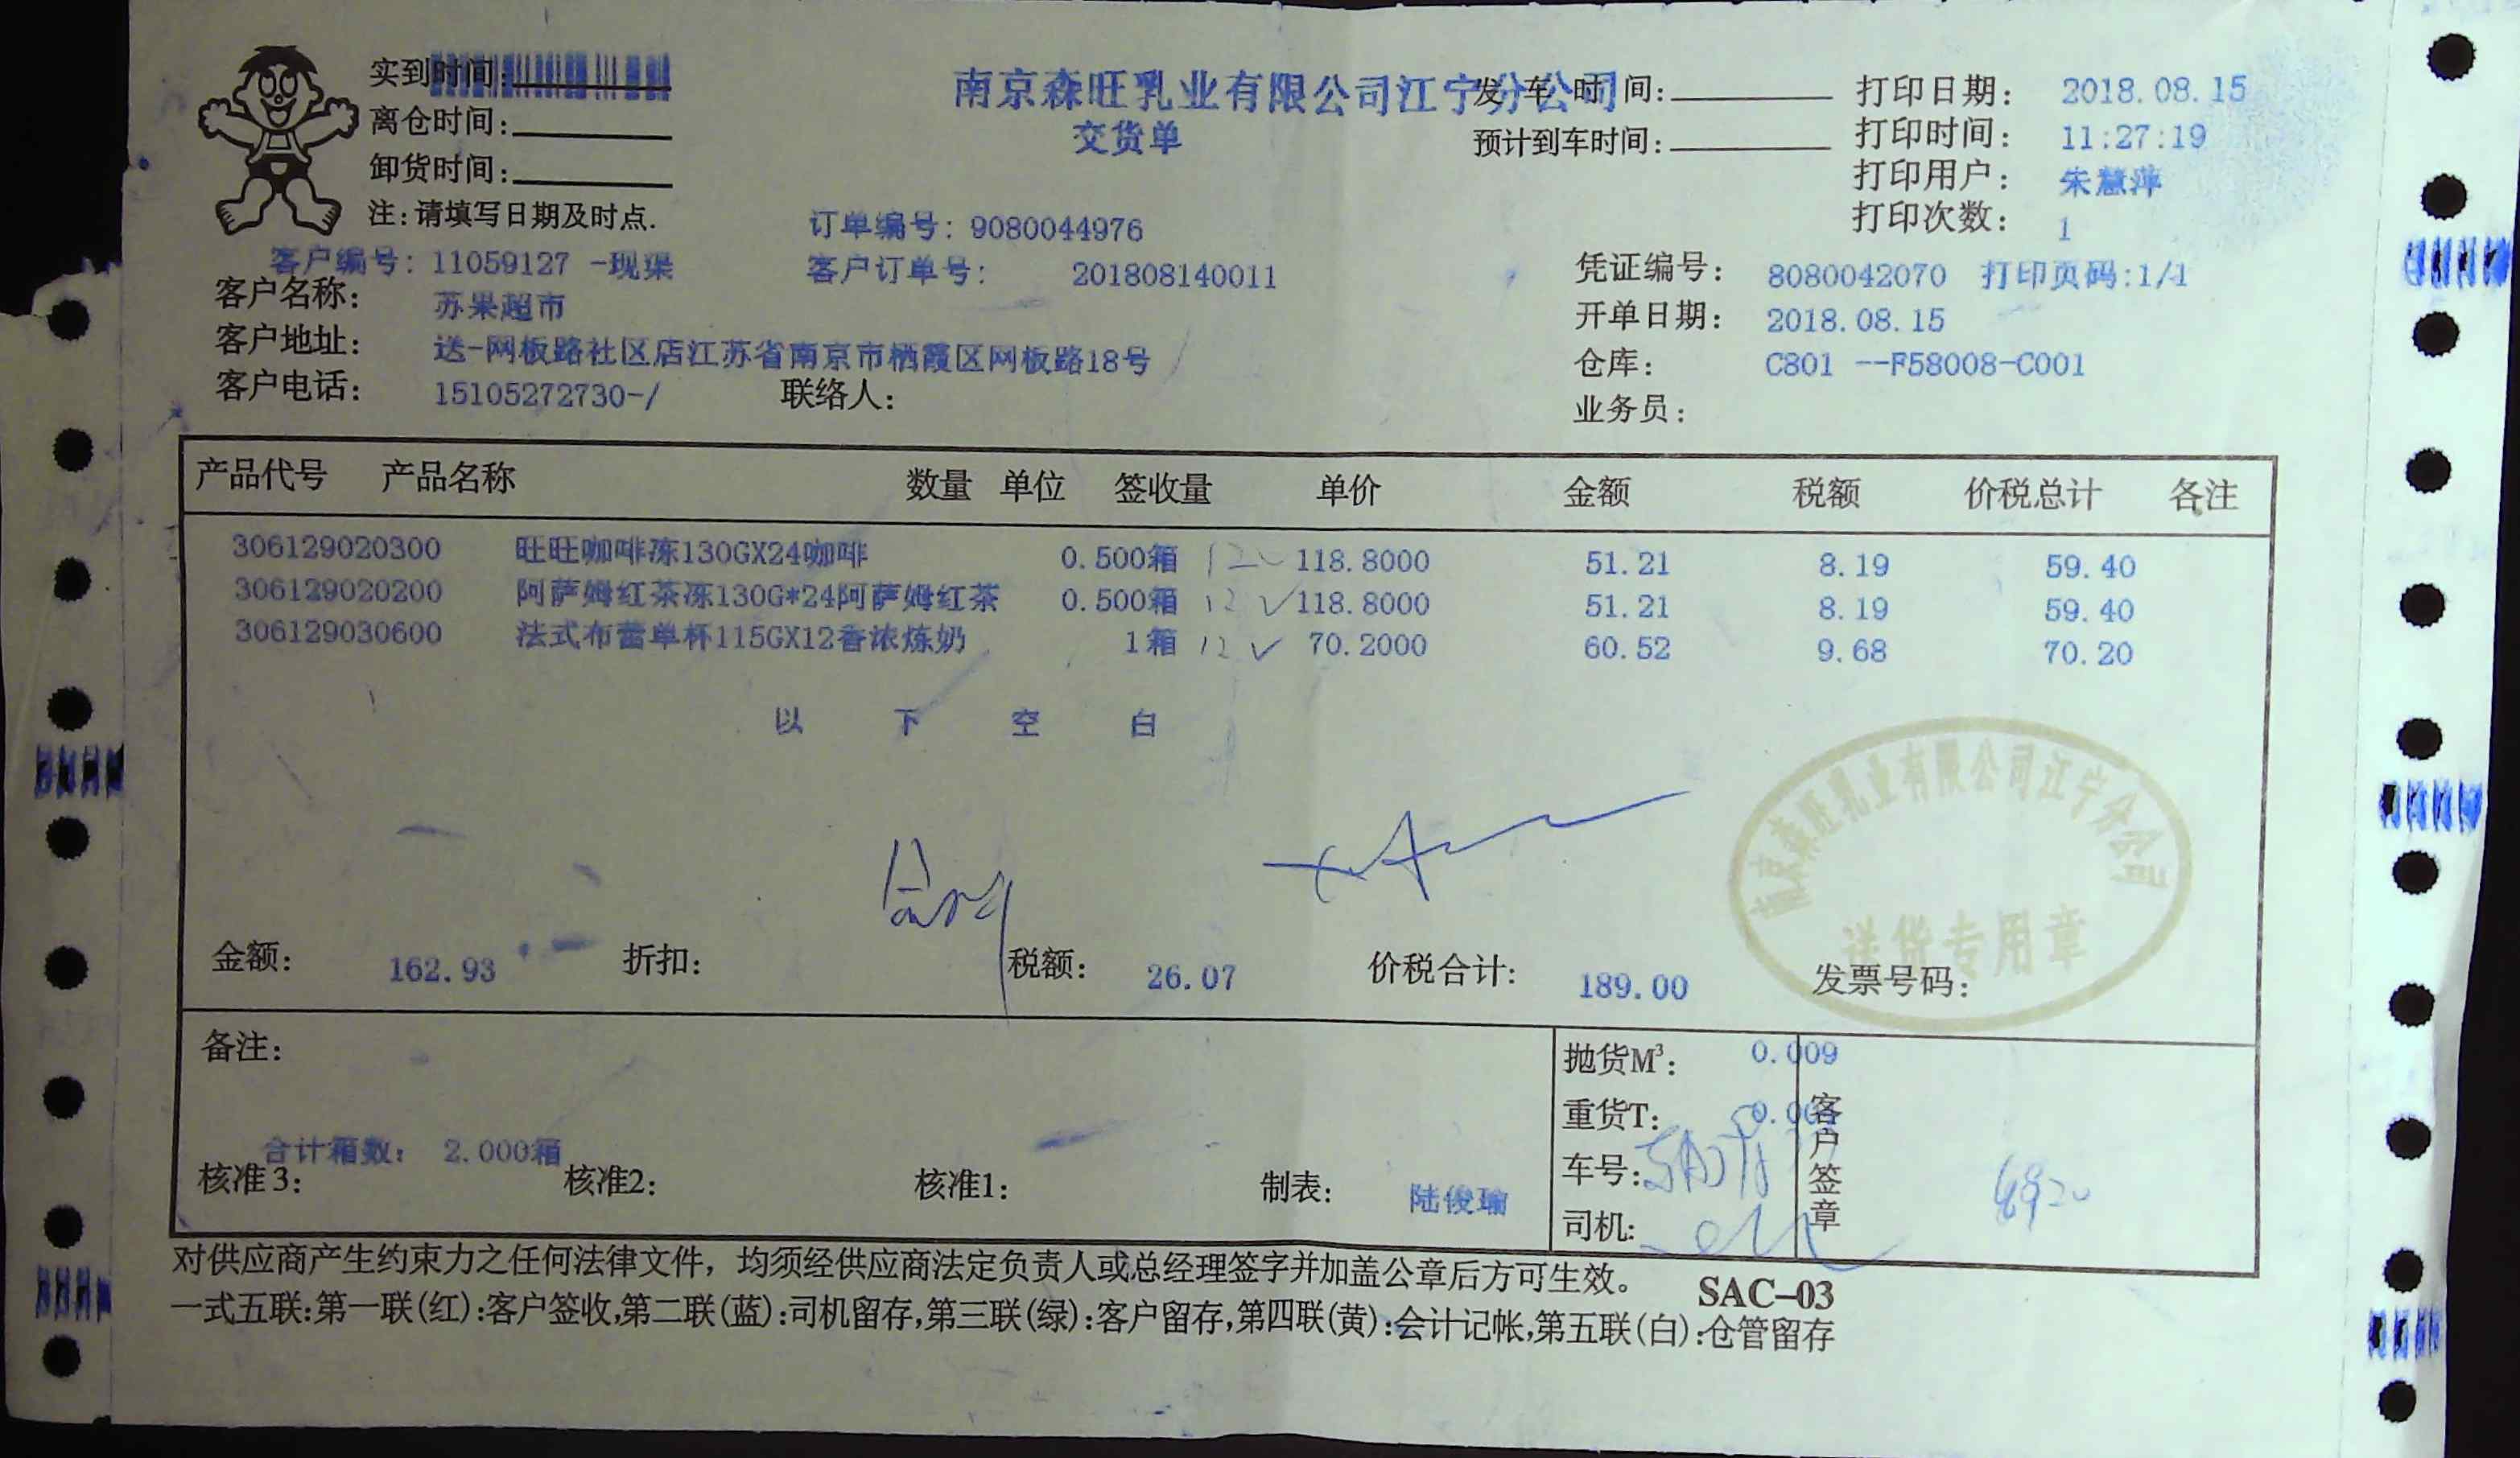 实到时间:
离仓时间:
卸货时间:
注:请填写日期及时点.
南京森旺乳业有限公司江宁分公司
交货单
发车时间:
预计到车时间:
打印日期: 2018.08.15
打印时间: 11:27:19
打印用户: 朱慧萍
打印次数: 1
订单编号: 9080044976
客户编号: 11059127 -现渠 客户订单号: 201808140011
凭证编号: 8080042070 打印页码:1/1
客户名称: 苏果超市
开单日期: 2018.08.15
客户地址: 送-网板路社区店江苏省南京市栖霞区网板路18号
仓库: C801 --F58008-C001
客户电话: 15105272730-/ 联络人:
业务员:
产品代号 产品名称 数量 单位 签收量 单价 金额 税额 价税总计 各注
306129020300 旺旺咖啡冻130GX24咖啡 0.500箱 12 118.8000 51.21 8.19 59.40
306129020200 阿萨姆红茶冻130G*24阿萨姆红茶 0.500箱 12 118.8000 51.21 8.19 59.40
306129030600 法式布蕾单杯115GX12香浓炼奶 1箱 12 70.2000 60.52 9.68 70.20
以 下 空 白
南京森旺乳业有限公司江宁分公司
送货专用章
金额: 162.93 折扣: 税额: 26.07 价税合计: 189.00 发票号码:
备注:
抛货M³: 0.009
重货T:
合计箱数: 2.000箱
车号:
核准3: 核准2: 核准1: 制表: 陆俊瑜
司机:
客户签章
对供应商产生约束力之任何法律文件，均须经供应商法定负责人或总经理签字并加盖公章后方可生效。 SAC-03
一式五联:第一联(红):客户签收,第二联(蓝):司机留存,第三联(绿):客户留存,第四联(黄):会计记帐,第五联(白):仓管留存